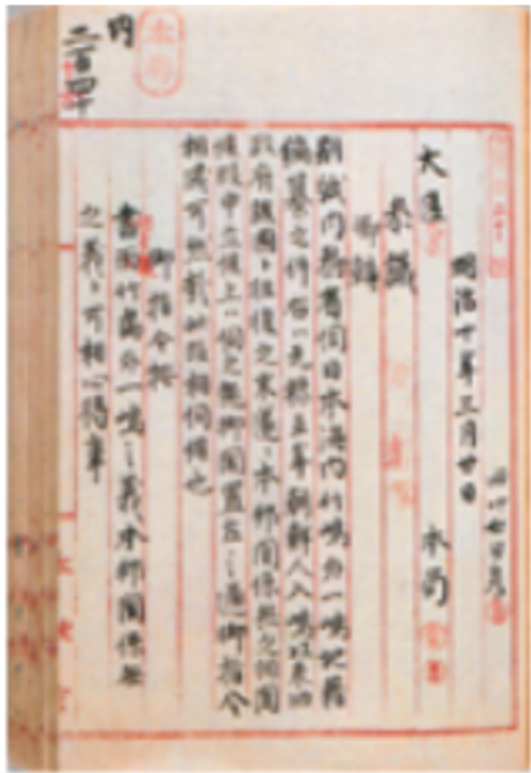 明治十年三月廿日
大臣 本局
参議
卿輔
別紙内務省伺日本海内竹嶋外一嶋地籍
編纂之件右ハ元禄五年朝鮮人入嶋以来旧
政府該国ト往復之末遂ニ本邦関係無之相聞
候段申立候上ハ伺之趣御聞置左之通御指令
相成可然哉此段相伺候也
御指令按
書面竹島外一嶋之義本邦関係無
之義ト可相心得事
内
二百四十